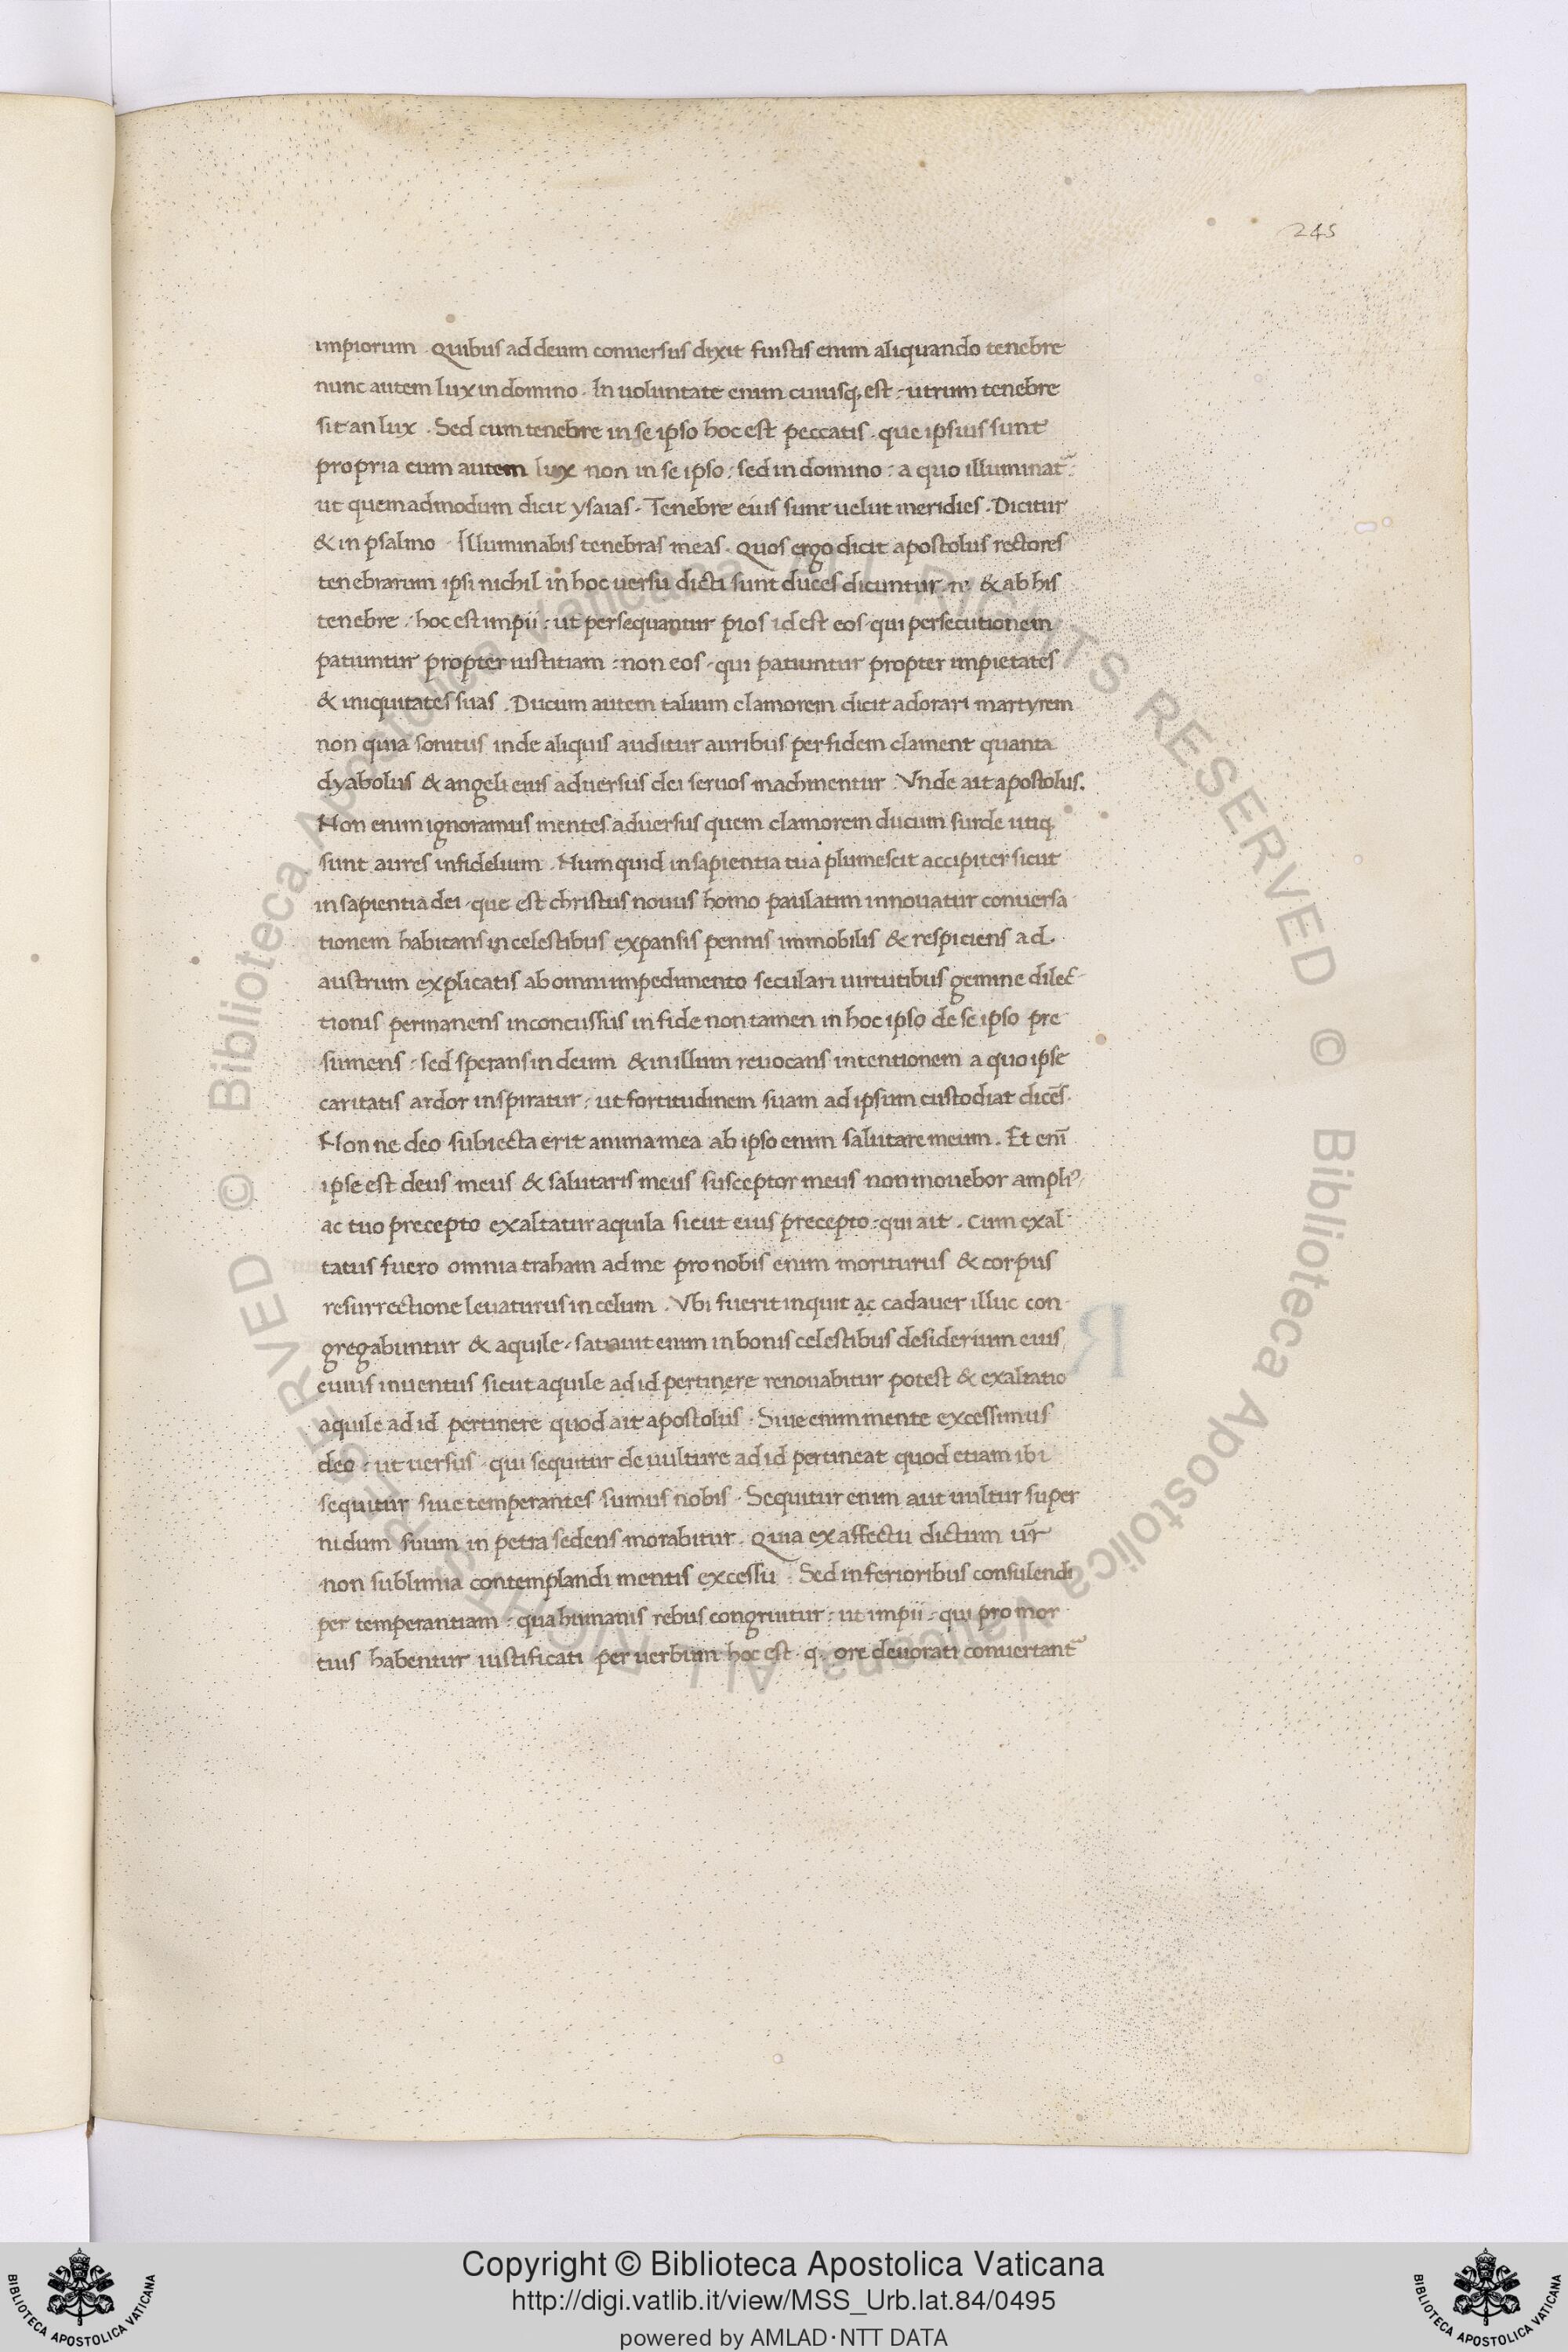 245
impiorum . Quibus ad deum conuersus dixit fuistis enim aliquando tenebre
nunc autem lux in domino . In uoluntate enim cuiusq; est : utrum tenebre
sit an lux . Sed cum tenebre in se ipso hoc est peccatis . que ipsius sunt
propria cum autem lux non in se ipso : sed in domino : a quo illuminat᷑ :
ut quemadmodum dicit ysaias . Tenebre eius sunt uelut meridies . Dicitur
& in psalmo . Illuminabis tenebras meas . Quos ergo dicit apostolus rectores
tenebrarum ipsi nichil in hoc uersu dicti sunt duces dicuntur & ab his
tenebre : hoc est impii : ut persequantur pios id est eos qui persecutionem
patiuntur propter iustitiam : non eos . qui patiuntur propter impietates
& iniquitates suas . Ducum autem talium clamorem dicit adorari martyrem
non quia sonitus inde aliquis auditur auribus per fidem clament quanta
dyabolus & angeli eius aduersus dei seruos machinentur . Vnde ait apostolus .
Non enim ignoramus mentes aduersus quem clamorem ducum surde utiq;
sunt aures infidelium . Num quid in sapientia tua plumescit accipiter sicut
in sapientia dei . que est christus nouus homo paulatim innouatur conuersa
tionem habitans in celestibus expansis pennis immobilis & respiciens ad
austrum explicatis ab omni impedimento seculari uirtutibus gemine dilec-
tionis permanens inconcussus in fide non tamen in hoc ipso de se ipso pre
sumens : sed sperans in deum & in illum reuocans intentionem a quo ipse
caritatis ardor inspiratur : ut fortitudinem suam ad ipsum custodiat dicẽs .
Non ne deo subiecta erit anima mea ab ipso enim salutare meum . Et eni᷑
ipse est deus meus & salutaris meus susceptor meus non mouebor ampliꝰ
ac tuo precepto exaltatur aquila sicut eius precepto : qui ait . Cum exal
tatus fuero omnia traham ad me pro nobis enim moriturus & corpus
resurrectione leuaturus in celum . Vbi fuerit inquit ac cadauer illuc con
gregabuntur & aquile . satiauit enim in bonis celestibus desiderium eius
cuius inuentus sicut aquile ad id pertinere renouabitur potest & exaltatio
aquile ad id pertinere quod ait apostolus . Siue enim mente excessimus
deo : ut uersus . qui sequitur de uulture ad id pertineat quod etiam ibi
sequitur siue temperantes sumus nobis . Sequitur enim aut uultur super
nidum suum in petra sedens morabitur . Quia ex affectu dictum ur̃
non sublimia contemplandi mentis excessu . Sed inferioribus consulendi
per temperantiam : qua humanis rebus congruitur : ut impii : qui pro mor
tuis habentur iustificati per uerbum hoc est . q . ore deuorati conuertant᷑
Copyright © Biblioteca Apostolica Vaticana
http://digi.vatlib.it/view/MSS_Urb.lat.84/0495
powered by AMLAD·NTT DATA